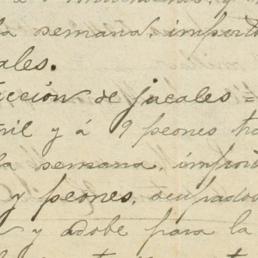 la semana, import
ales.
ucción de jacales =
ril y á 9 peones tra
la semana, import
y peones, ocupados
y adobe para la